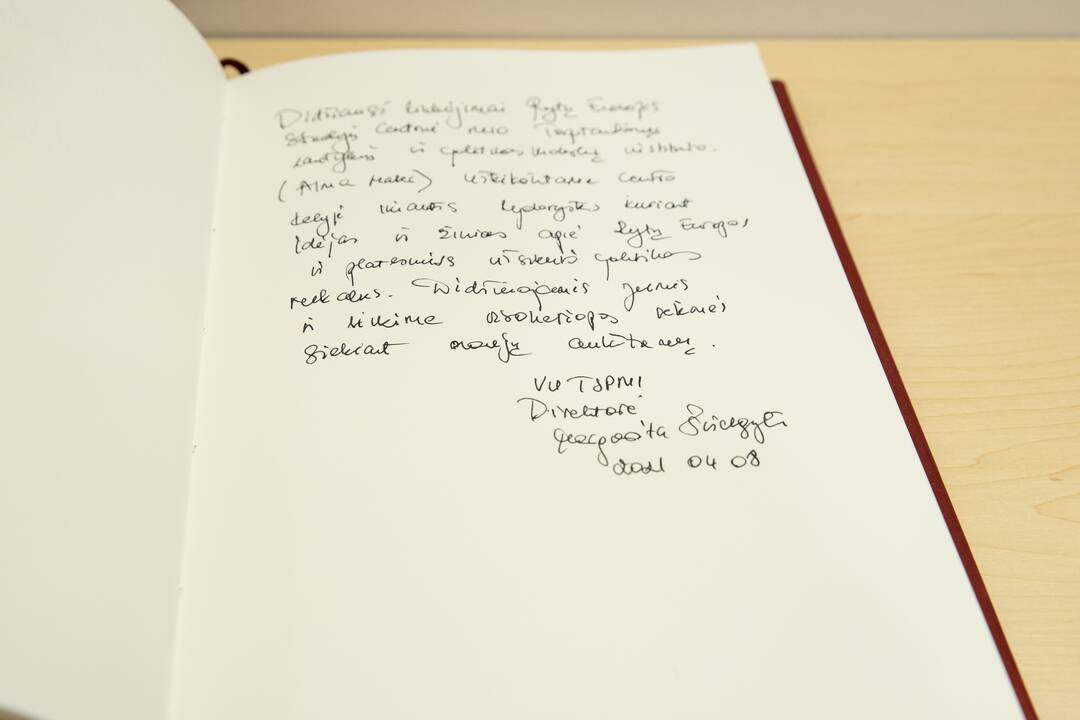 Didžiausi linkėjimai Rytų Europos
Studijų Centrui nuo Tarptautinių
santykių ir politikos mokslų instituto.
(Alma mater) Centro
kelyje lyderystės kuriant
Idėjas ir žinias apie Rytų Europos
ir platesnius užsienio politikos
reikalus. Didžiuojamės Jumis
ir linkime visokeriopos sėkmės
siekiant naujų aukštumų.
VU TSPMI
Direktorė
Margarita Šešelgytė
2021 04 08